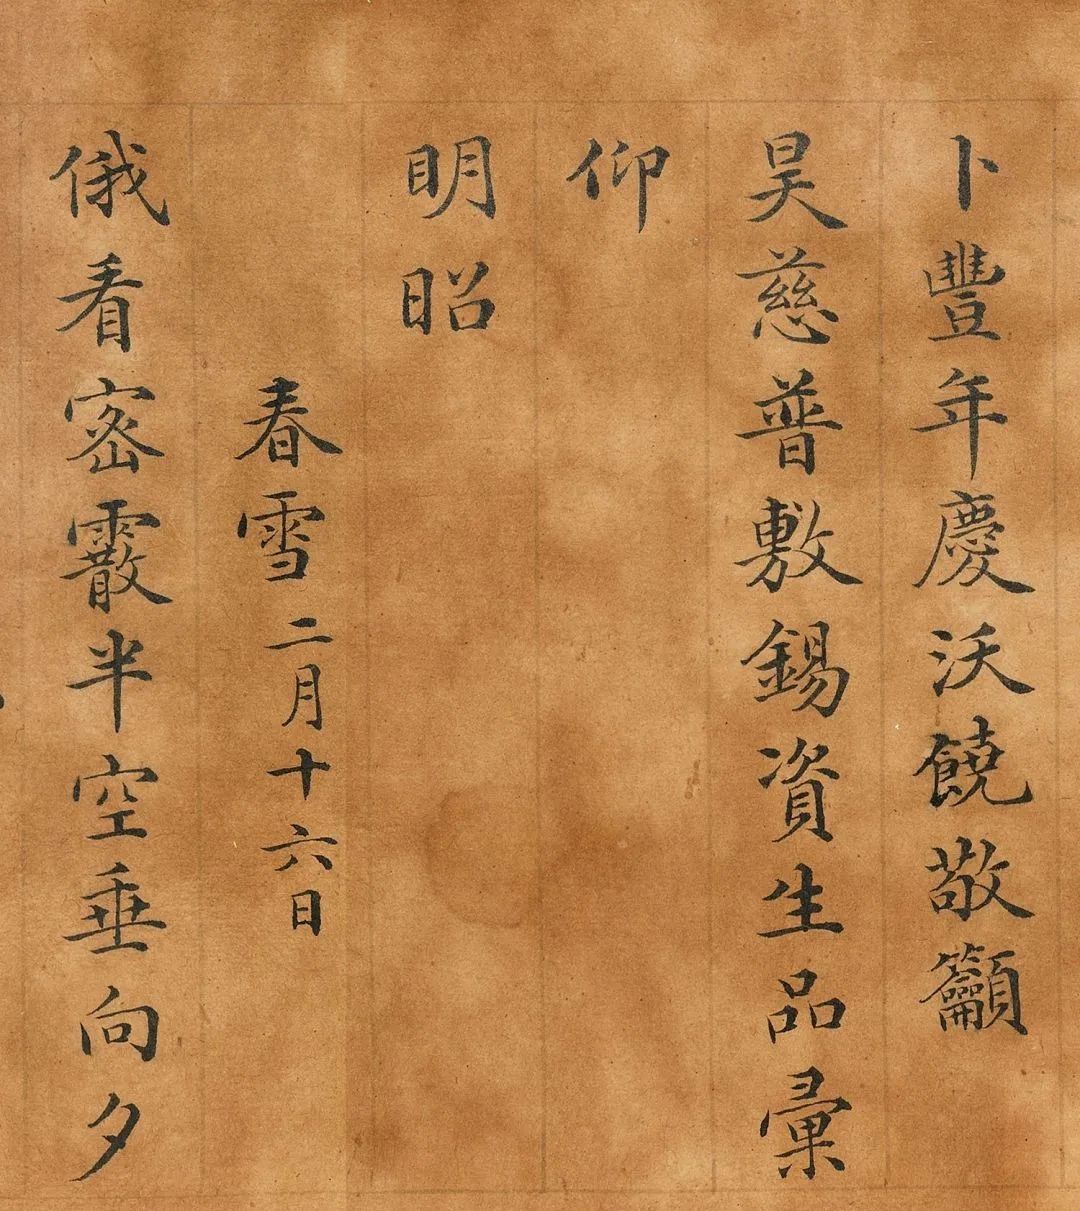 卜豐年慶沃饒敬籲
昊慈普敷錫資生品彙
仰
明昭
春雪二月十六日
俄看密霰半空垂向夕